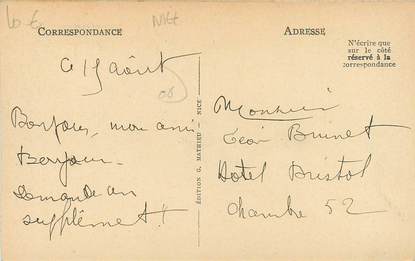 60 €
CORRESPONDANCE
ADRESSE
N'écrire que
sur le côté
réservé à la
correspondance
Ce 15 août
Bonjour, mon ami
Bonjour.
Demande un
supplément!!
ÉDITION G. MATHIEU - NICE
Monsieur
Léon Brunet
Hotel Bristol
Chambre 52